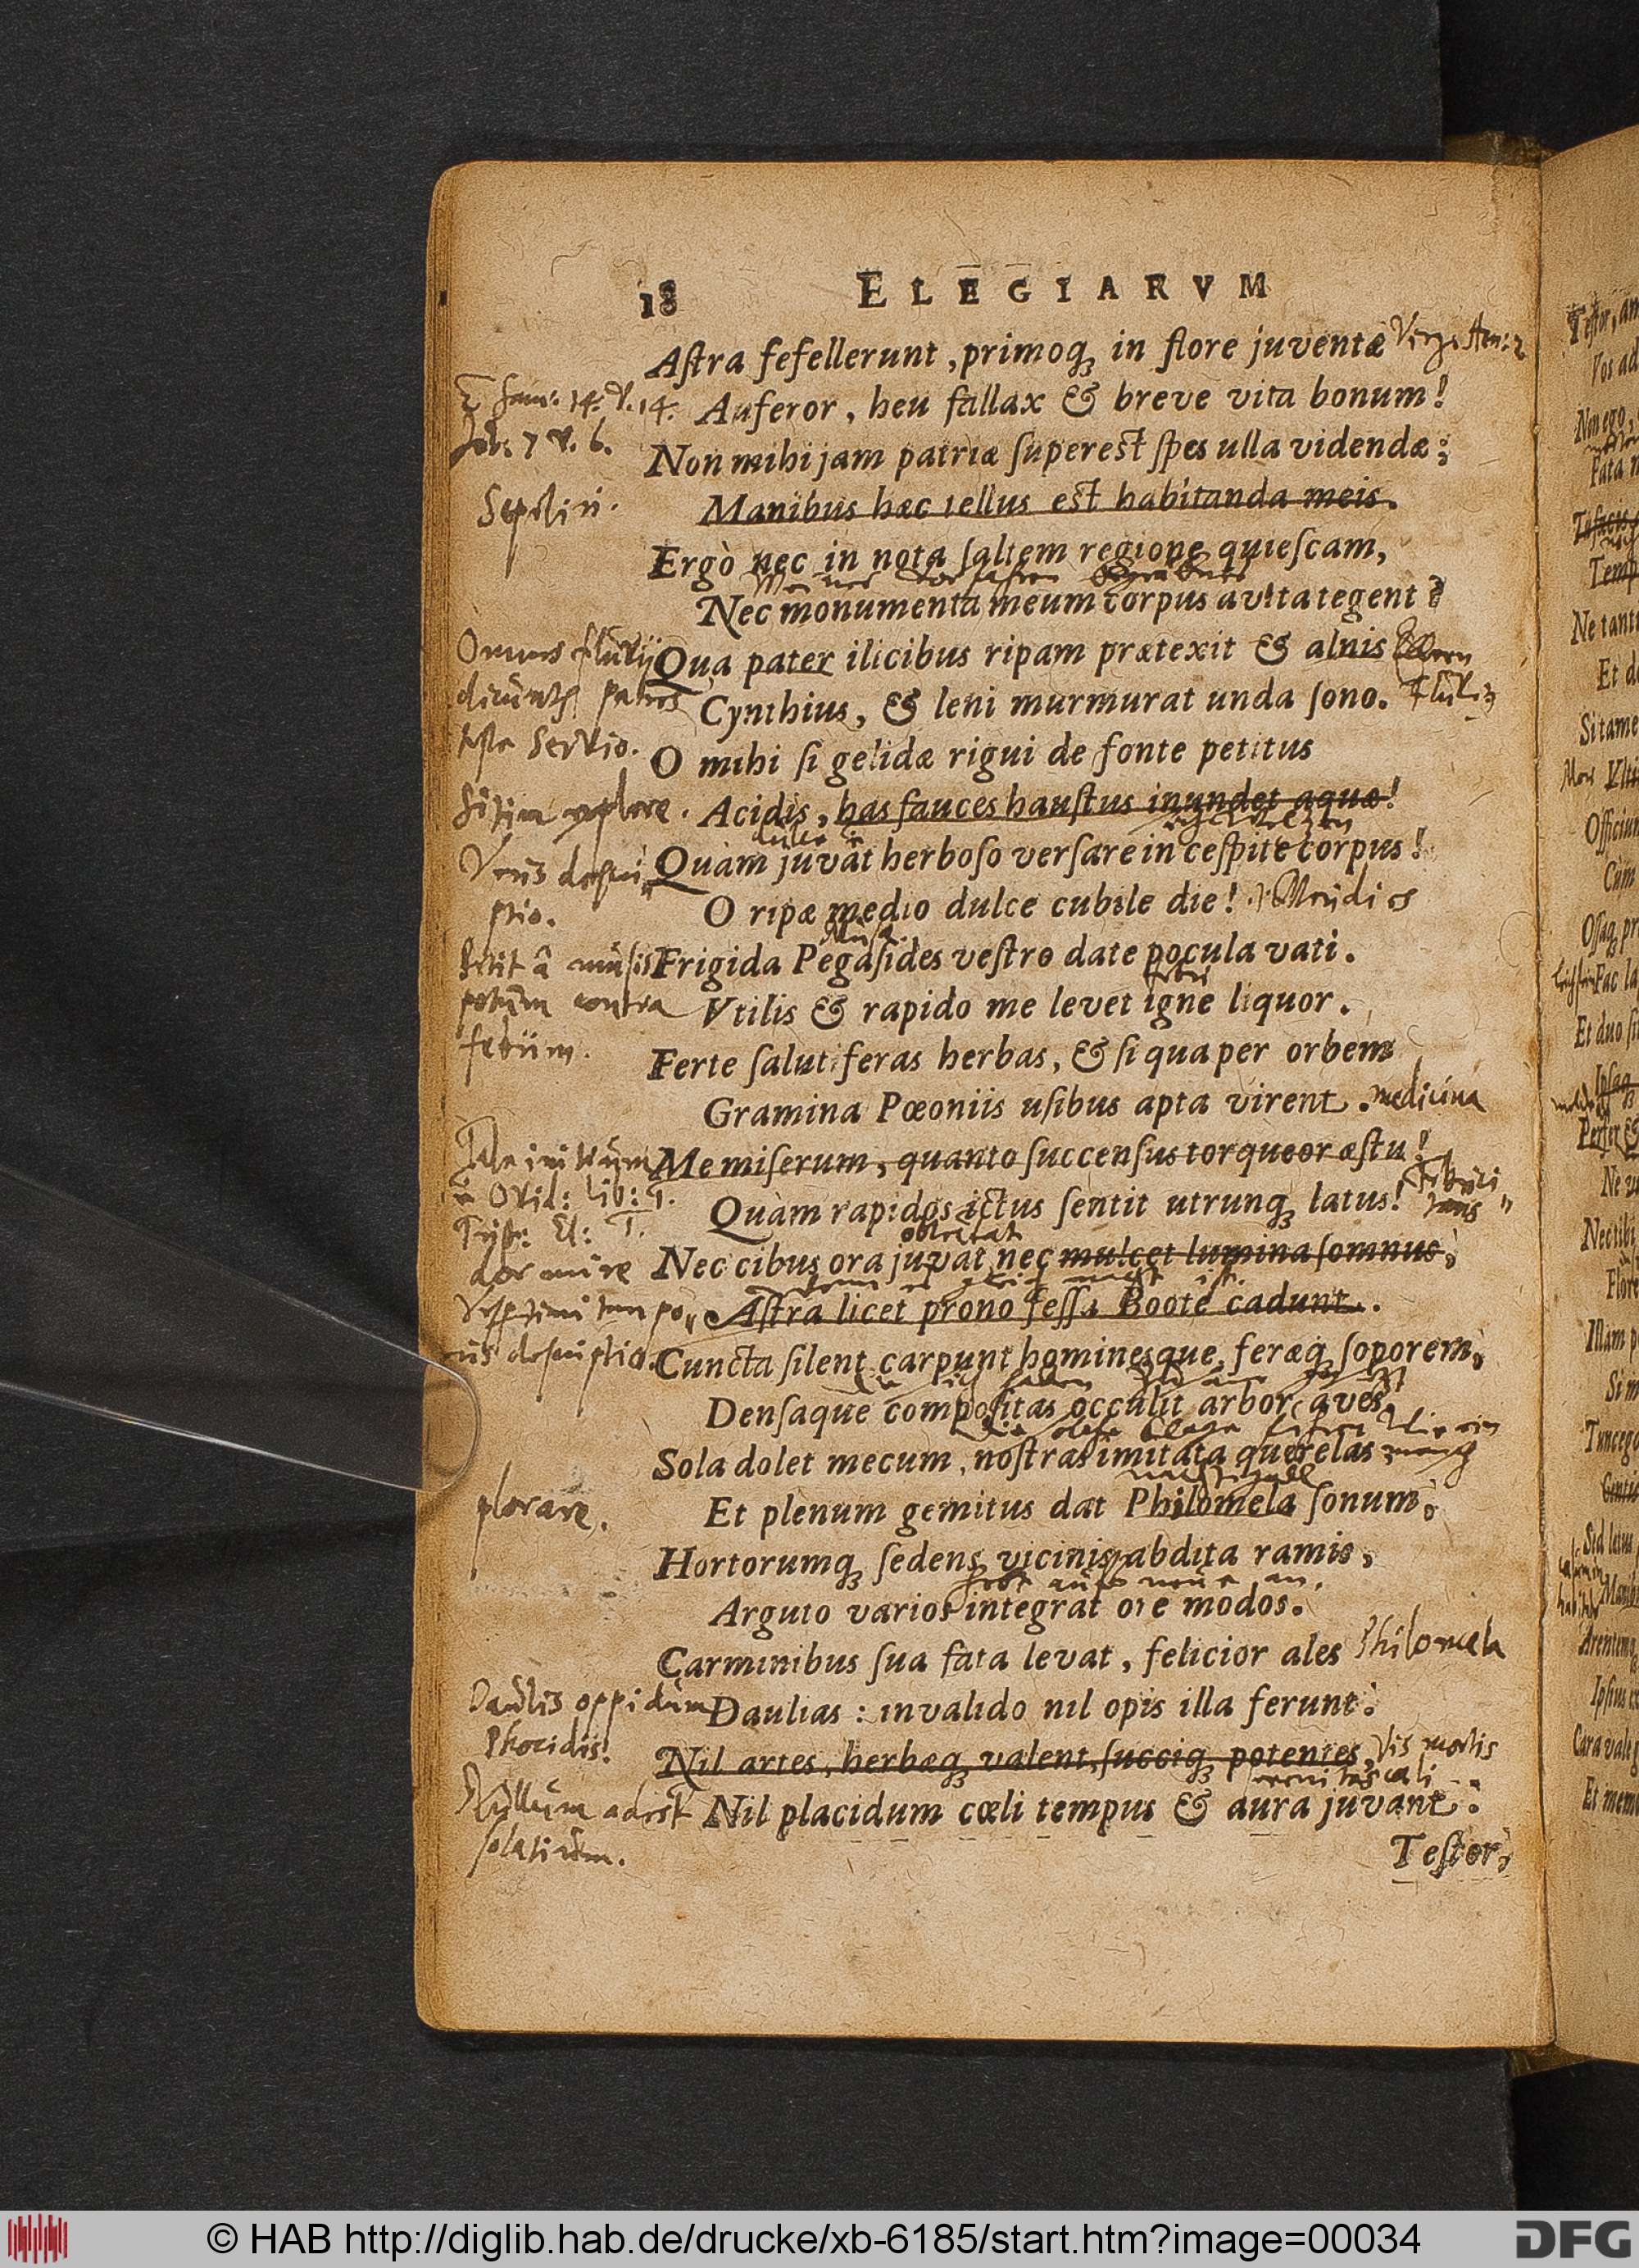 18 ELEGIARVM
Aſtra fefellerunt, primoq; in flore juventæ
2 Sam: 14. V. 14. Auferor, heu fallax & breve vita bonum!
Job: 7 V. 6.
Non mihi jam patriæ ſupereſt ſpes ulla videndæ:
Sepeliri.
Manibus hæc tellus eſt habitanda meis.
Ergò nec in nota ſaltem regione quieſcam,
Nec monumenta meum corpus avita tegent?
Omnes fluvij
Qua pater ilicibus ripam prætexit & alnis
dicunt~ patres
Cynthius, & leni murmurat unda ſono.
teste Servio.
O mihi ſi gelidæ rigui de fonte petitus
Sitim explere.
Acidis, has fauces hauſtus inundet aquæ!
Quàm juvat herboſo verſare in ceſpite corpus!
Veris descri„
ptio.
O ripæ medio dulce cubile die! Meridies
Musæ
Petit â musis
Frigida Pegaſides veſtro date pocula vati.
febri
potum contra
Vtilis & rapido me levet igne liquor.
febrim.
Ferte ſalutiferas herbas, & ſi qua per orbem
Gramina Pœoniis uſibus apta virent. medicina
Me miſerum, quanto ſuccenſus torqueor æſtu!
Ovid: lib: 1.
Quàm rapidos ictus ſentit utrunq; latus!
Trist: El: 1.
oblectat
dormire
Nec cibus ora juvat, nec mulcet lumina ſomnus,
Aſtra licet prono feſſa Boote cadunt.
ris descriptio.
Cuncta ſilent, carpunt hominesque, feræq; ſoporem,
Denſaque compoſitas occulit arbor aves,
Sola dolet mecum, noſtras imitata querelas
nachtigall
plorare.
Et plenum gemitus dat Philomela ſonum,
Hortorumq; ſedens vicinis abdita ramis,
Arguto varios integrat ore modos.
Carminibus ſua fata levat, felicior ales Philomela
Daulis oppidum
Daulias: invalido nil opis illa ferunt.
Phocidis.
Nil artes, herbæq; valent, ſucciq; potentes,
Nullum adest
Nil placidum cœli tempus & aura juvant:
solatium.
Teſtor,
© HAB http://diglib.hab.de/drucke/xb-6185/start.htm?image=00034
DFG